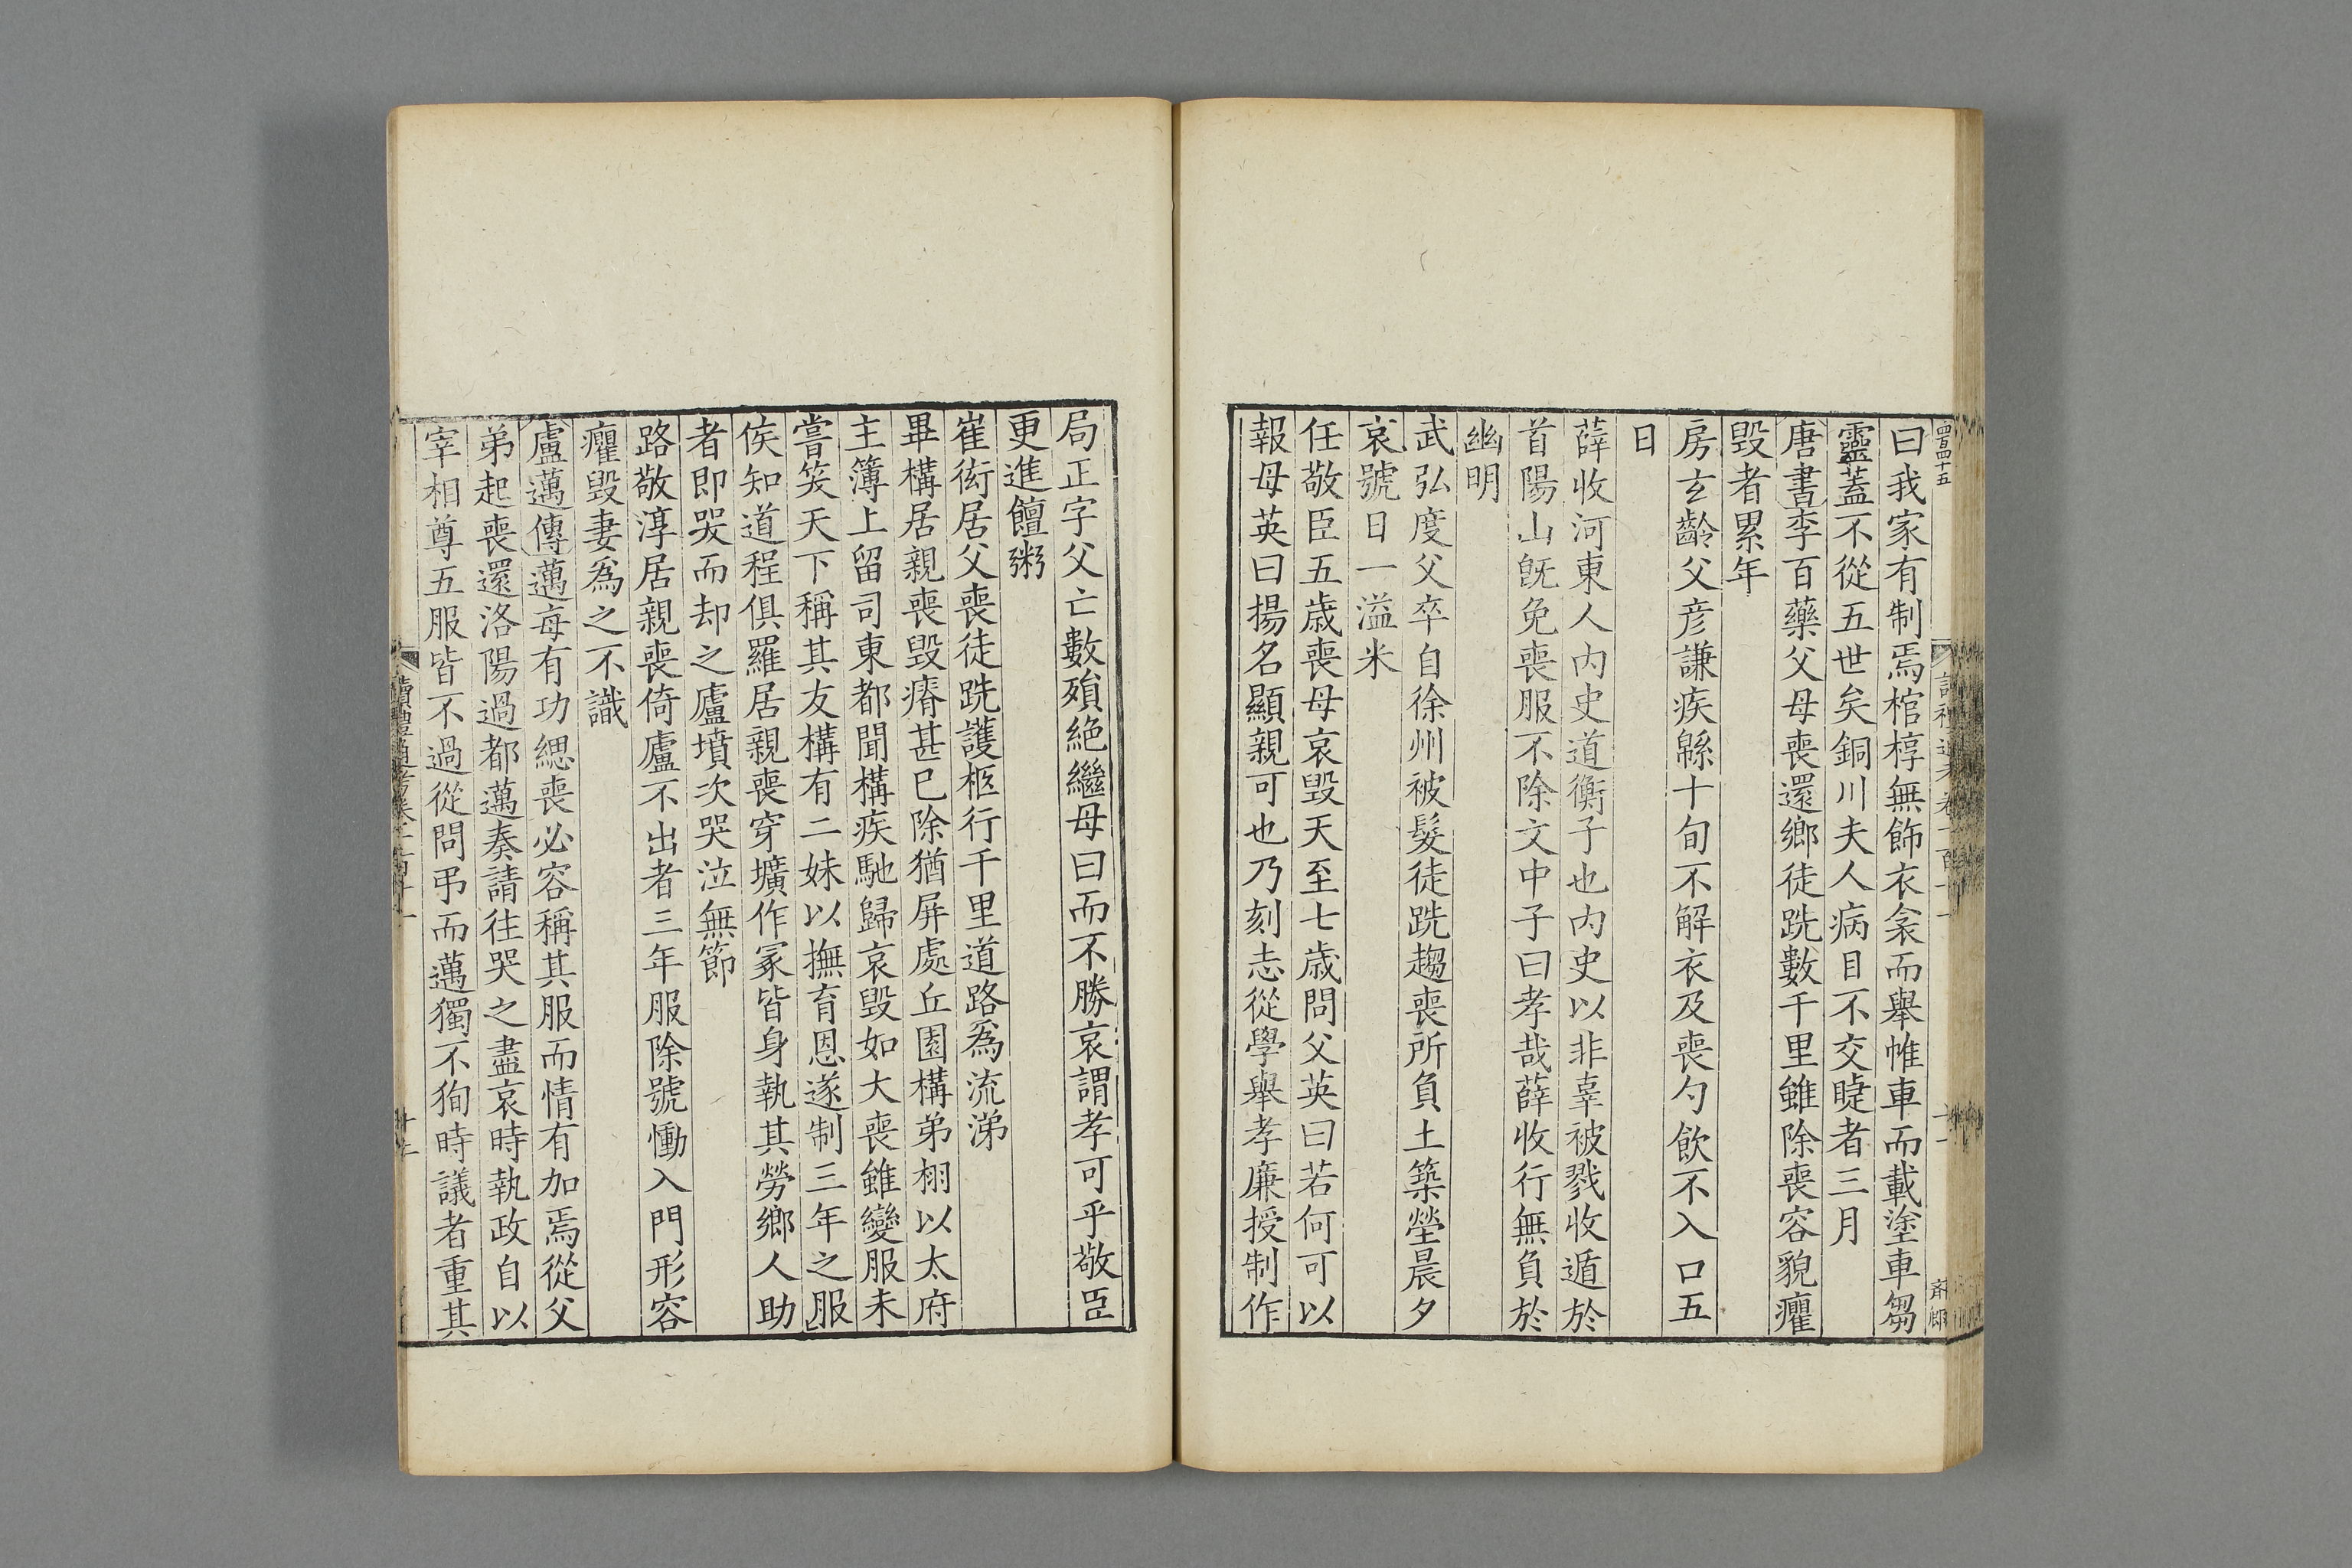 四百四十五
曰我家有制焉棺椁無飾衣衾而舉帷車而載塗車芻
靈蓋不從五世矣銅川夫人病目不交睫者三月
唐書李百藥父母喪還鄉徒跣數千里雖除喪容貌癯
毀者累年
房玄齡父彦謙疾緜十旬不解衣及喪勺飲不入口五
日
薛收河東人内史道衡子也内史以非辜被戮收遁於
首陽山旣免喪服不除文中子曰孝哉薛收行無負於
幽明
武弘度父卒自徐州被髮徒跣趨喪所負土築塋晨夕
哀號日一溢米
任敬臣五歲喪母哀毀天至七歲問父英曰若何可以
報母英曰揚名顯親可也乃刻志從學舉孝廉授制作
局正字父亡數殞絶繼母曰而不勝哀謂孝可乎敬臣
更進饘粥
崔衒居父喪徒跣護柩行千里道路爲流涕
畢構居親喪毀瘠甚已除猶屏處丘園構弟栩以太府
主簿上留司東都聞構疾馳歸哀毀如大喪雖變服未
嘗笑天下稱其友構有二妹以撫育恩遂制三年之服
侯知道程俱羅居親喪穿壙作冢皆身執其勞鄉人助
者即哭而却之廬墳次哭泣無節
路敬淳居親喪倚廬不出者三年服除號慟入門形容
癯毀妻爲之不識
盧邁傳邁每有功緦喪必容稱其服而情有加焉從父
弟起喪還洛陽過都邁奏請往哭之盡哀時執政自以
宰相尊五服皆不過從問弔而邁獨不徇時議者重其